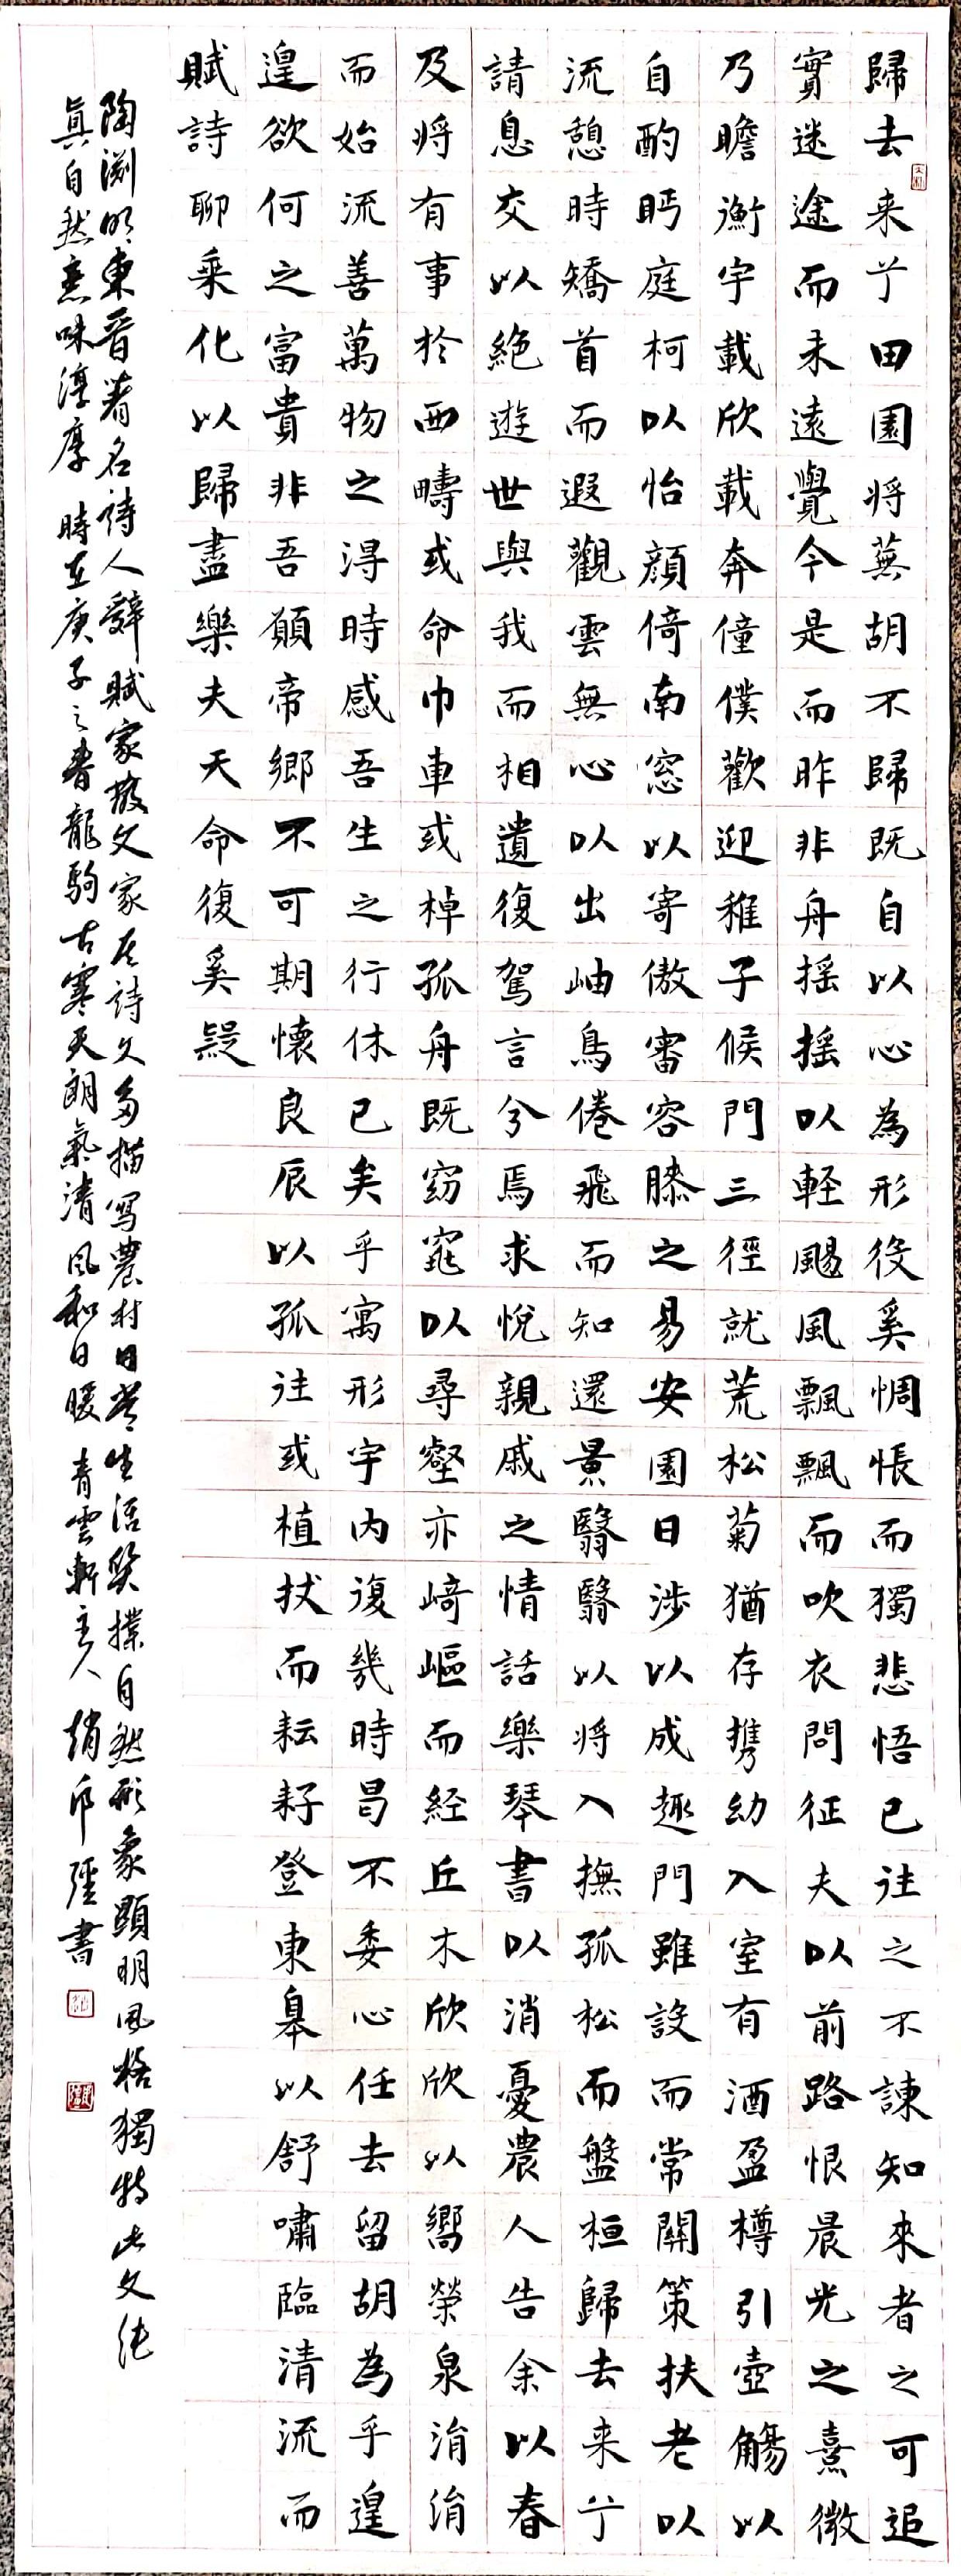 歸去来兮田園将蕪胡不歸既自以心為形役奚惆悵而獨悲悟已往之不諫知來者之可追
實迷途而未遠覺今是而昨非舟揺揺以軽颺風飄飄而吹衣問征夫以前路恨晨光之熹微
乃瞻衡宇載欣載奔僮僕歡迎稚子候門三徑就荒松菊猶存携幼入室有酒盈樽引壺觴以
自酌眄庭柯以怡顔倚南窓以寄傲審容膝之易安園日涉以成趣門雖設而常關策扶老以
流憩時矯首而遐觀雲無心以出岫鳥倦飛而知還景翳翳以将入撫孤松而盤桓歸去来兮
請息交以絶遊世與我而相遺復駕言兮焉求悅親戚之情話樂琴書以消憂農人告余以春
及将有事於西疇或命巾車或棹孤舟既窈窕以尋壑亦崎嶇而経丘木欣欣以嚮榮泉涓涓
而始流善萬物之得時感吾生之行休已矣乎寓形宇内復幾時曷不委心任去留胡為乎遑
遑欲何之富貴非吾願帝鄉不可期懷良辰以孤往或植杖而耘耔登東皋以舒嘯臨清流而
賦詩聊乘化以歸盡樂夫天命復奚疑
陶淵明東晉著名詩人辭賦家散文家其詩文多描写農村日常生活質樸自然形象顯明風格獨特此文純
真自然意味淳厚時在庚子之春龍駒古寨天朗氣清風和日暖青雲軒主人趙書